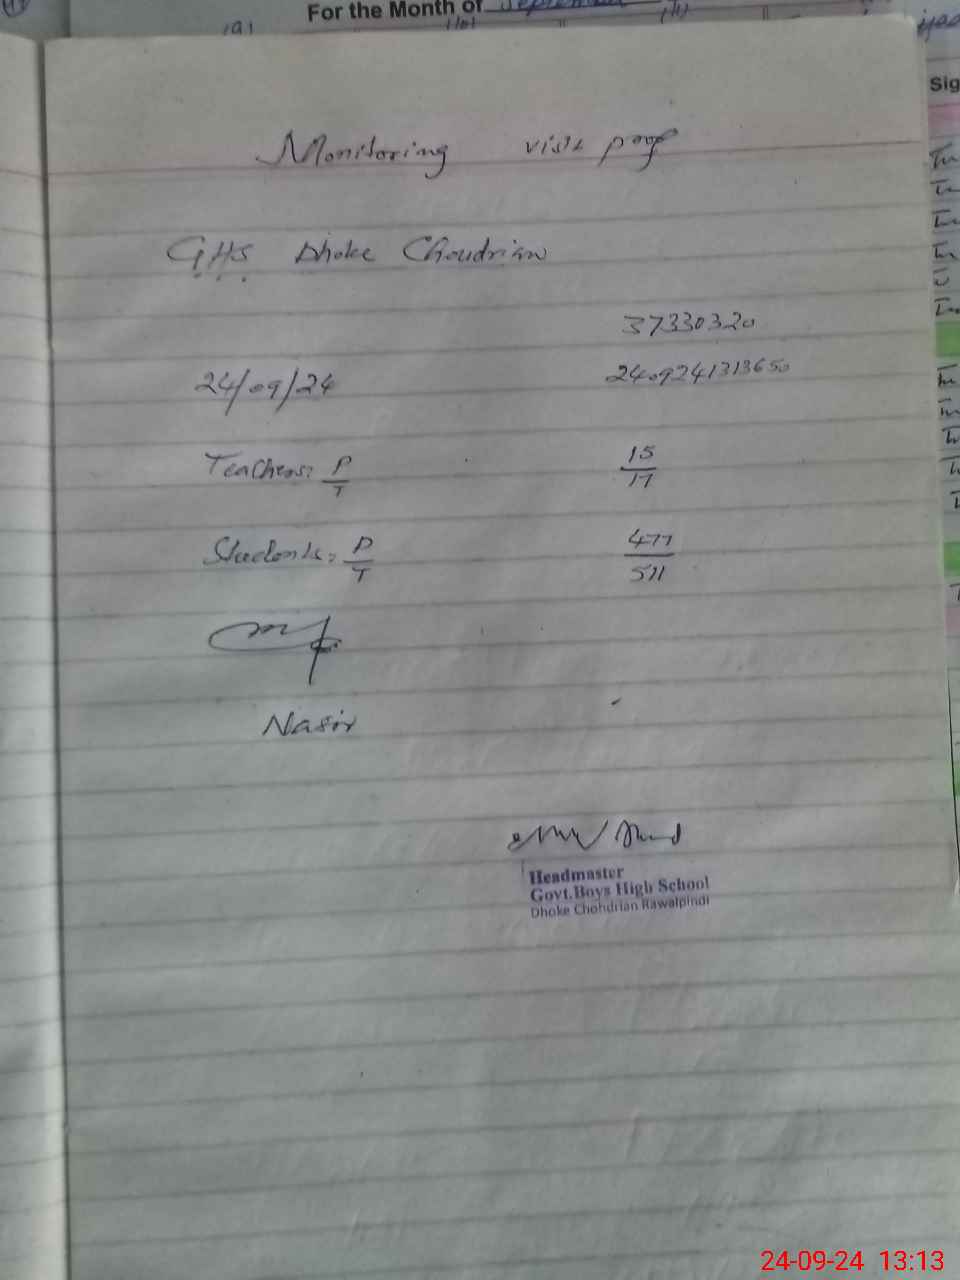 For the Month of September
Sig
Monitoring visit proof
GHS Dhoke Choudrian
37330320
24/09/24 2409241313650
Teachers: P/T 15/17
Students: P/T 477/511
Nasir
Headmaster
Govt.Boys High School
Dhoke Chohdrian Rawalpindi
24-09-24 13:13